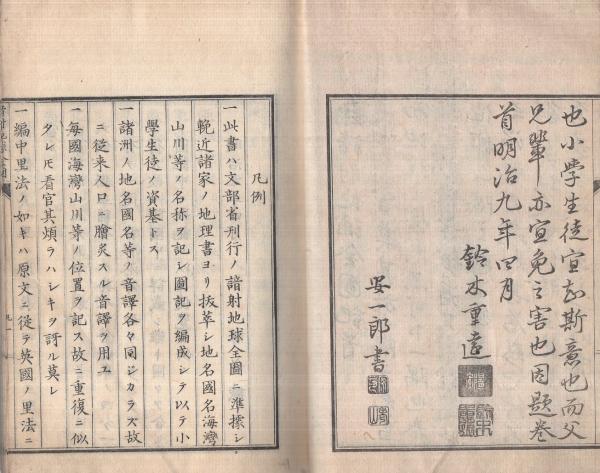 也小学生徒宜知斯意也而父
兄輩亦宜免之害也因題巻
首明治九年四月
鈴木重遠
安一郎書
凡例
一此書ハ文部省刊行ノ諳射地球全圖ニ準據シ
輓近諸家ノ地理書ヨリ抜萃シ地名國名海灣
山川等ノ名称ヲ記シ圖記ヲ編成シテ以テ小
學生徒ノ資基トス
一諸洲ノ地名國名等ノ音譯各々同シカラズ故
ニ從来人口ニ膾炙スル音譯ヲ用ユ
一每國海灣山川等ノ位置ヲ記ス故ニ重復ニ似
タレ𪜈看官其煩ラハシキヲ訝ル莫レ
一編中里法ノ如キハ原文ニ從テ英國ノ里法ニ